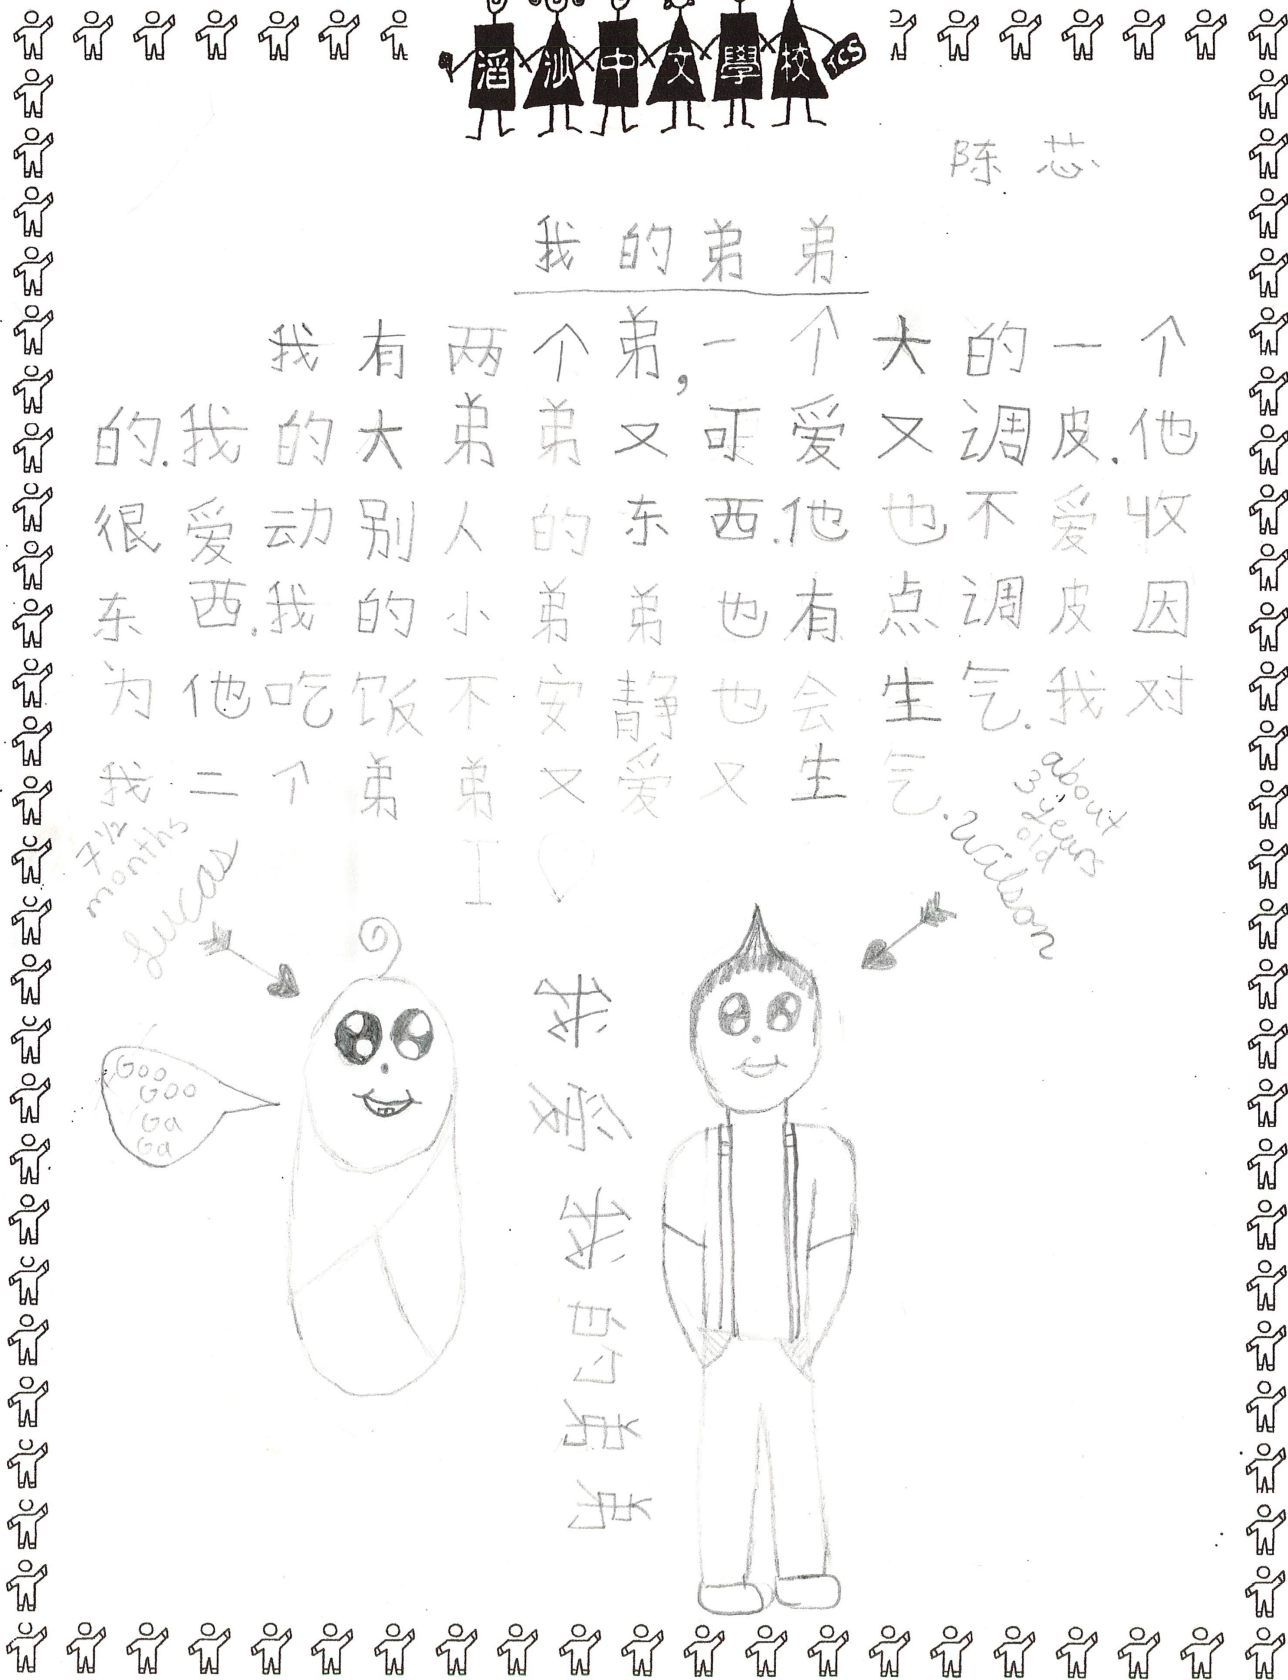 滔沙中文學校
TCS
陈芯
我的弟弟
我有两个弟,一个大的一个
的.我的大弟弟又可爱又调皮.他
很爱动别人的东西.他也不爱收
东西.我的小弟弟也有点调皮因
为他吃饭不安静也会生气.我对
我二个弟弟又爱又生气.
7 1/2
months
Lucas
about
3 years
old
Wilson
I ♡
Goo
Goo
Ga
Ga
我爱我的弟弟